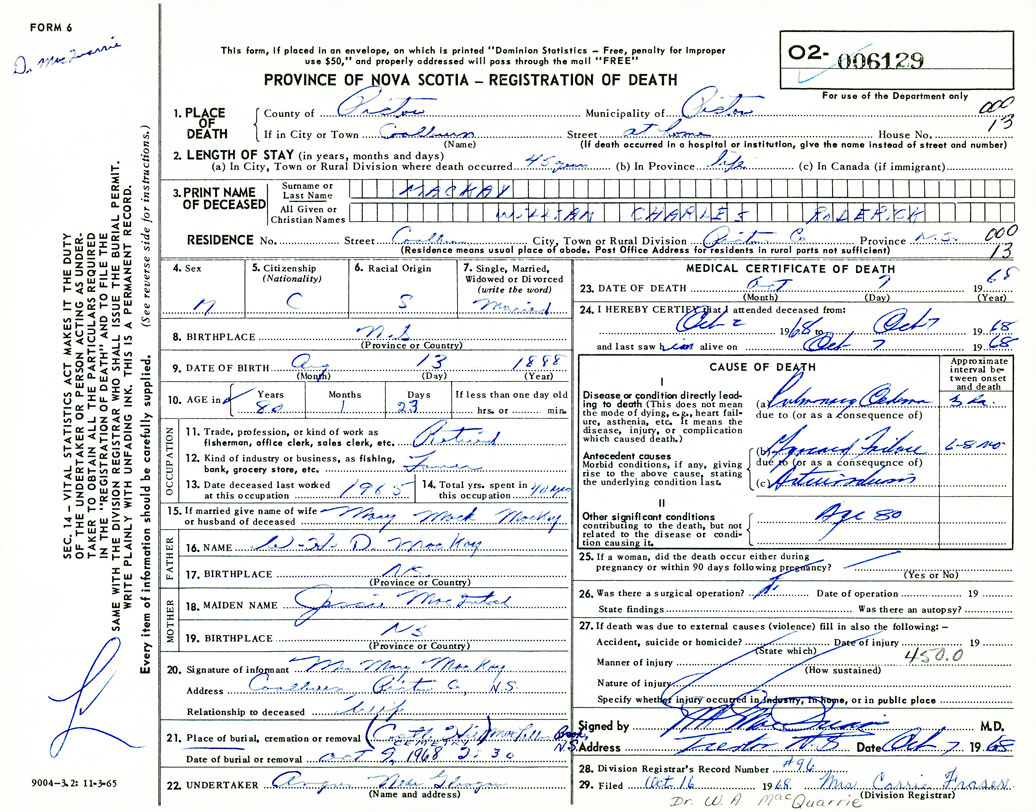 FORM 6
Dr. MacQuarrie
This form, if placed in an envelope, on which is printed "Dominion Statistics – Free, penalty for improper
use $50," and properly addressed will pass through the mail "FREE"
PROVINCE OF NOVA SCOTIA – REGISTRATION OF DEATH
02- 006129
For use of the Department only
000
13
1. PLACE OF DEATH
County of Pictou Municipality of Pictou
If in City or Town Coalburn Street at home House No.
(Name) (If death occurred in a hospital or institution, give the name instead of street and number)
2. LENGTH OF STAY (in years, months and days)
(a) In City, Town or Rural Division where death occurred 45 years (b) In Province life (c) In Canada (if immigrant)
3. PRINT NAME OF DECEASED
Surname or Last Name MACKAY
All Given or Christian Names WILLIAM CHARLES RODERICK
RESIDENCE No. Street Coalburn City, Town or Rural Division Pictou Co Province N.S.
(Residence means usual place of abode. Post Office Address for residents in rural ports not sufficient)
000
13
4. Sex M
5. Citizenship (Nationality) C
6. Racial Origin S
7. Single, Married, Widowed or Divorced (write the word) Married
8. BIRTHPLACE N.S
(Province or Country)
9. DATE OF BIRTH Aug 13 1888
(Month) (Day) (Year)
10. AGE in Years 80 Months 1 Days 23 If less than one day old hrs. or min.
OCCUPATION
11. Trade, profession, or kind of work as
fisherman, office clerk, sales clerk, etc. Retired
12. Kind of industry or business, as fishing,
bank, grocery store, etc.
13. Date deceased last worked
at this occupation 1965
14. Total yrs. spent in
this occupation 40 yrs
15. If married give name of wife
or husband of deceased Mary Mack MacKay
FATHER
16. NAME W. H. D. MacKay
17. BIRTHPLACE N.S.
(Province or Country)
MOTHER
18. MAIDEN NAME Jessie MacIntosh
19. BIRTHPLACE NS
(Province or Country)
20. Signature of informant Mrs Mary MacKay
Address Coalburn Pictou Co, N.S.
Relationship to deceased wife
21. Place of burial, cremation or removal
CEMETERY
N.S.
Date of burial or removal Oct 9, 1968 2:30
22. UNDERTAKER New Glasgow
(Name and address)
MEDICAL CERTIFICATE OF DEATH
23. DATE OF DEATH Oct 7 19 68
(Month) (Day) (Year)
24. I HEREBY CERTIFY that I attended deceased from:
Oct 2 1968 to Oct 7 19 68
and last saw him alive on Oct 7 19 68
CAUSE OF DEATH
Approximate interval between onset and death
I
Disease or condition directly leading to death (This does not mean the mode of dying, e.g., heart failure, asthenia, etc. It means the disease, injury, or complication which caused death.)
(a) Pulmonary Oedema
due to (or as a consequence of)
Antecedent causes
Morbid conditions, if any, giving rise to the above cause, stating the underlying condition last.
(b) Failure 6-8 mo
due to (or as a consequence of)
(c)
II
Other significant conditions
contributing to the death, but not
related to the disease or condition causing it.
Age 80
25. If a woman, did the death occur either during
pregnancy or within 90 days following pregnancy?
(Yes or No)
26. Was there a surgical operation? Date of operation 19
State findings Was there an autopsy?
27. If death was due to external causes (violence) fill in also the following: –
Accident, suicide or homicide? Date of injury 19
(State which)
Manner of injury 450.0
(How sustained)
Nature of injury
Specify whether injury occurred in industry, in home, or in public place
Signed by M.D.
Address Trenton N.S. Date Oct 7 1968
28. Division Registrar's Record Number #96
29. Filed Oct 16 1968 Mrs Carrie Fraser
(Division Registrar)
Dr. W. A MacQuarrie
SEC. 14 – VITAL STATISTICS ACT MAKES IT THE DUTY
OF THE UNDERTAKER OR PERSON ACTING AS UNDER-
TAKER TO OBTAIN ALL THE PARTICULARS REQUIRED
IN THE "REGISTRATION OF DEATH" AND TO FILE THE
SAME WITH THE DIVISION REGISTRAR WHO SHALL ISSUE THE BURIAL PERMIT.
WRITE PLAINLY WITH UNFADING INK. THIS IS A PERMANENT RECORD.
Every item of information should be carefully supplied. (See reverse side for instructions.)
9004–3.2: 11-3-65